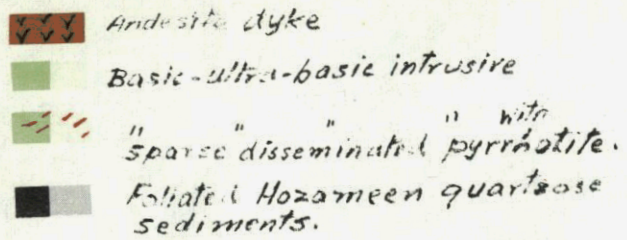 Andesite dyke
Basic-ultra-basic intrusive
" " " " with
sparse disseminated pyrrhotite.
Foliated Hozameen quartzose
sediments.